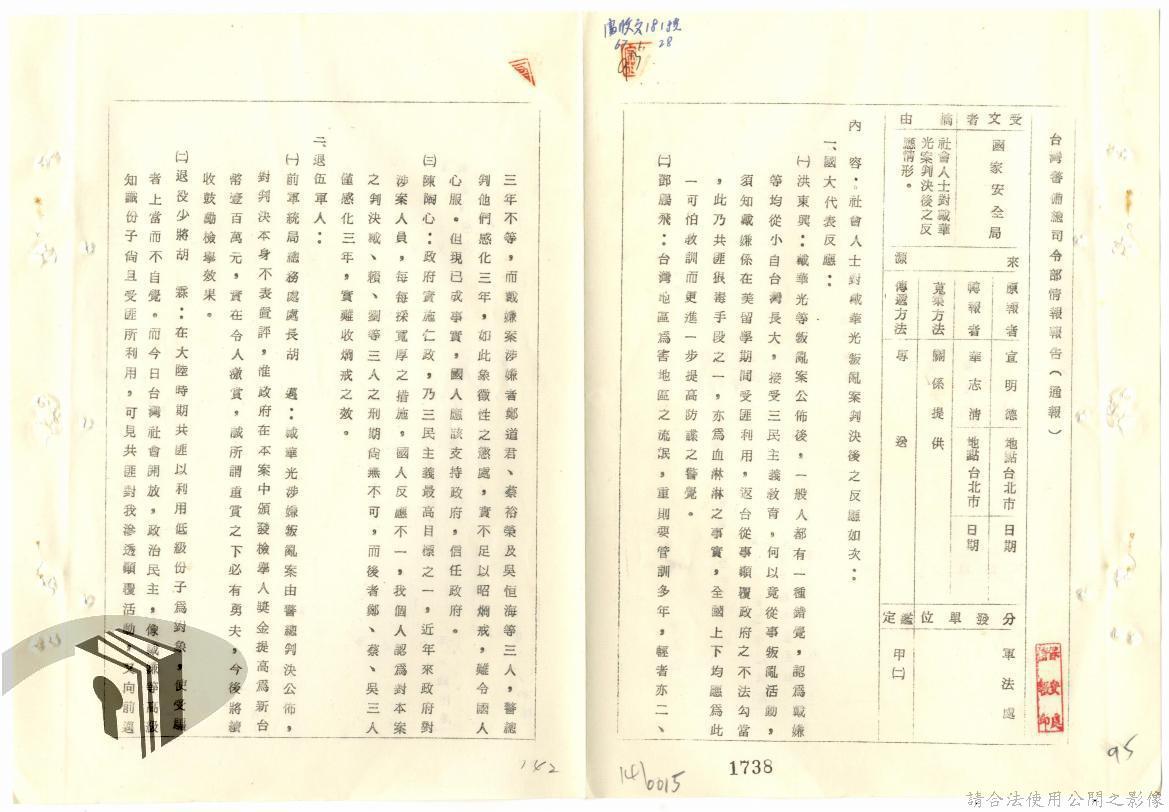 台灣警備總司令部情報報告（通報）
受文者
國家安全局
摘由
社會人士對戴華
光案判決後之反
應情形。
來源
原報者 宣明德 地點 台北市 日期
轉報者 華志清 地點 台北市 日期
蒐集方法 關係提供
傳遞方法 專送
分發單位 軍法處
鑑定 甲(二)
內容：社會人士對戴華光叛亂案判決後之反應如次：
一、國大代表反應：
㈠洪東興：戴華光等叛亂案公佈後，一般人都有一種錯覺，認為戴嫌
等均從小自台灣長大，接受三民主義教育，何以竟從事叛亂活動，
須知戴嫌係在美留學期間受匪利用，返台從事顛覆政府之不法勾當
，此乃共匪狠毒手段之一，亦為血淋淋之事實，全國上下均應為此
一可怕教訓而更進一步提高防諜之警覺。
㈡鄧鵬飛：台灣地區為害地區之流氓，重則要管訓多年，輕者亦二、
三年不等，而戴嫌案涉嫌者鄭道君、蔡裕榮及吳恒海等三人，警總
判他們感化三年，如此象徵性之懲處，實不足以昭炯戒，難令國人
心服。但現已成事實，國人應該支持政府，信任政府。
㈢陳陶心：政府實施仁政，乃三民主義最高目標之一，近年來政府對
涉案人員，每每採寬厚之措施，國人反應不一，我個人認為對本案
之判決戴、賴、劉等三人之刑期尚無不可，而後者鄭、蔡、吳三人
僅感化三年，實難收炯戒之效。
二、退伍軍人：
㈠前軍統局總務處處長胡 邁：戴華光涉嫌叛亂案由警總判決公佈，
對判決本身不表置評，惟政府在本案中頒發檢舉人獎金提高為新台
幣壹百萬元，實在令人激賞，誠所謂重賞之下必有勇夫，今後將續
收鼓勵檢舉效果。
㈡退役少將胡 霖：在大陸時期共匪以利用低級份子為對象，使受騙
者上當而不自覺。而今日台灣社會開放，政治民主，像戴嫌等高級
知識份子尚且受匪所利用，可見共匪對我滲透顛覆活動，又向前邁
1738
14/0015
95
142
請合法使用公開之影像